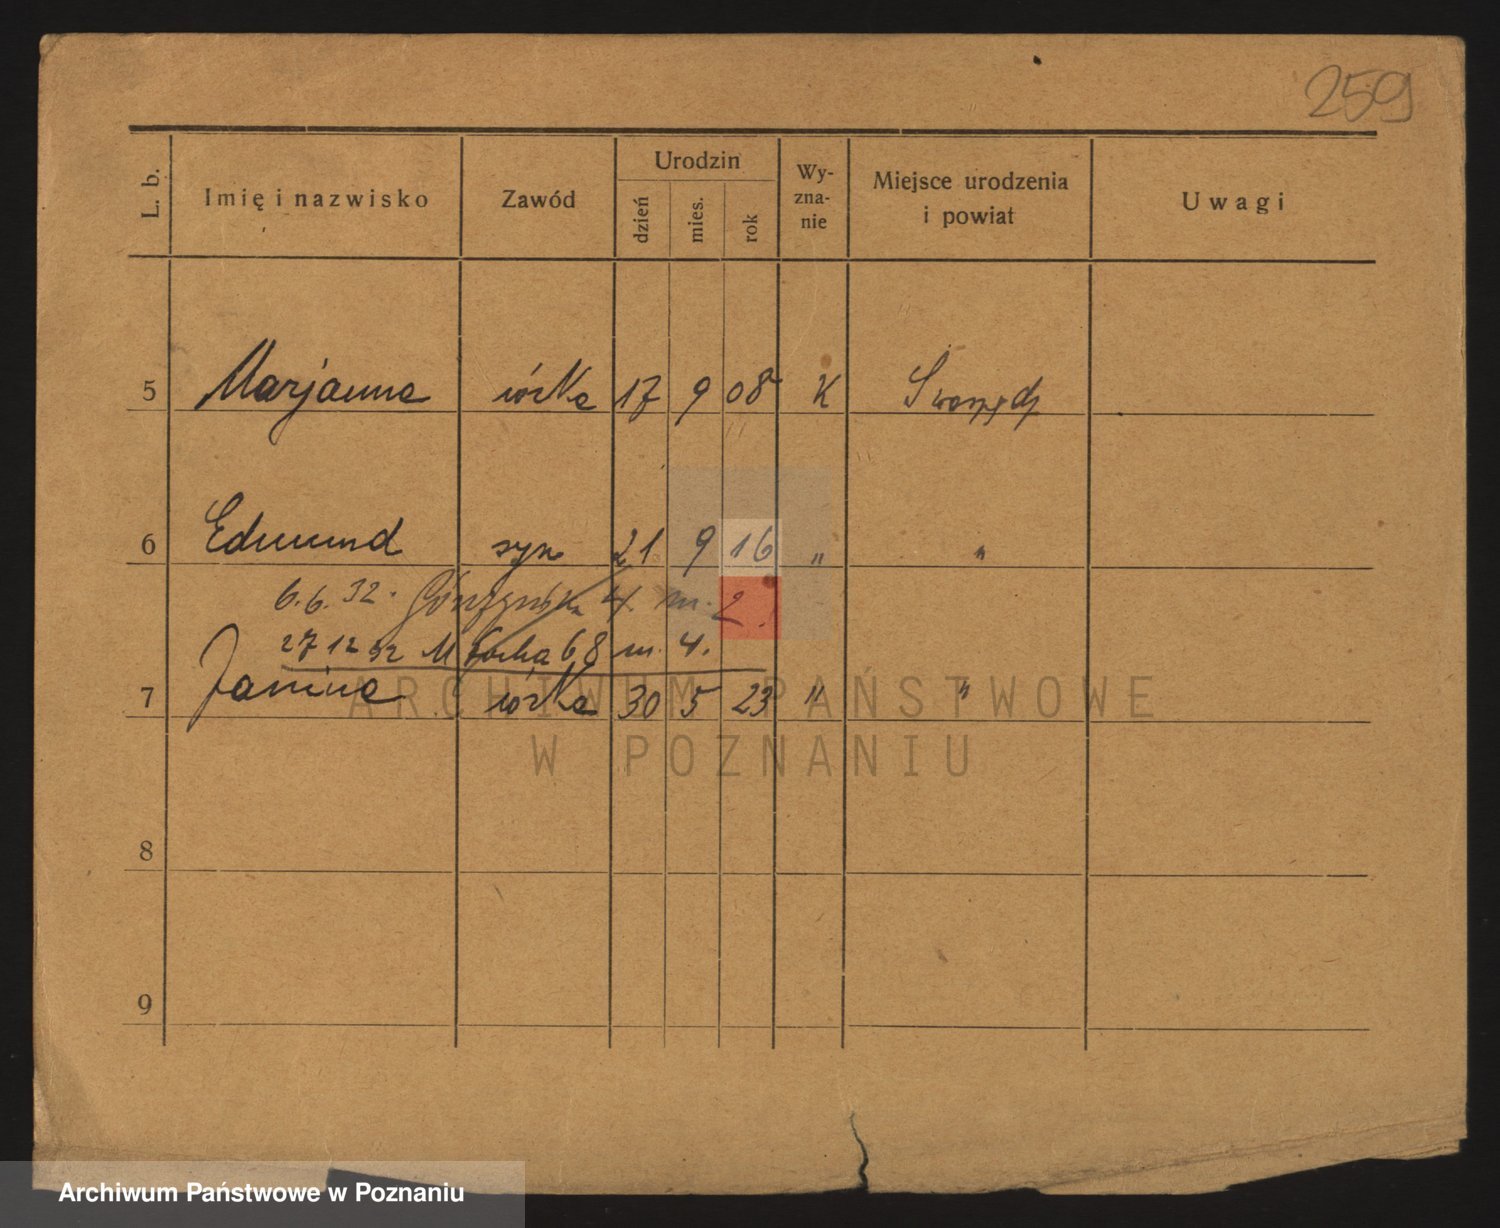 259
L. b. Imię i nazwisko Zawód Urodzin dzień mies. rok Wy-zna-nie Miejsce urodzenia i powiat Uwagi
5 Marjanna córka 17 9 08 K Swarzędz
6 Edmund syn 21 9 16 " "
6.6.32. 4 m. 2.
27 12 32 M Focha 68 m. 4.
7 Janina córka 30 5 23 " "
ARCHIWUM PAŃSTWOWE
W POZNANIU
8
9
Archiwum Państwowe w Poznaniu